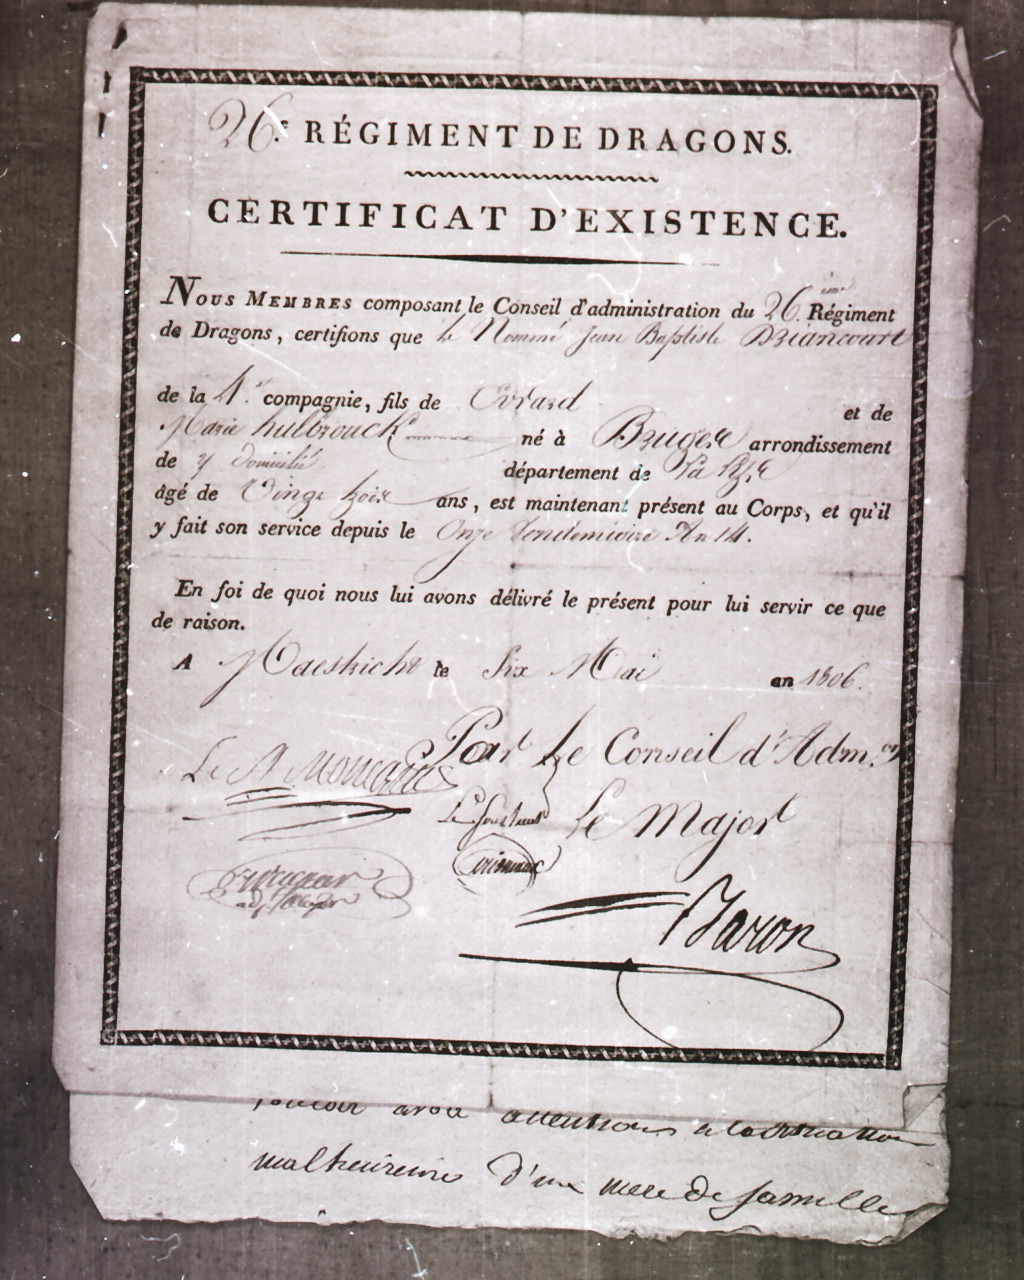 26.e RÉGIMENT DE DRAGONS.
CERTIFICAT D'EXISTENCE.
Nous Membres composant le Conseil d'administration du 26.ème Régiment
de Dragons, certifions que le Nommé Jean Baptiste Briancourt
de la 4.e compagnie, fils de Evrard et de
Marie hulbrouck né à Bruges arrondissement
de y domicilié département de La Lys
âgé de Vingt trois ans, est maintenant présent au Corps, et qu'il
y fait son service depuis le Onze Vendemiaire An 14.
En foi de quoi nous lui avons délivré le présent pour lui servir ce que
de raison.
A Maestricht le Six Mai an 1806.
Par Le Conseil d'Adm.on
Le Major
Baron
avoir attention a la situation
malheureuse d'une mere de famille